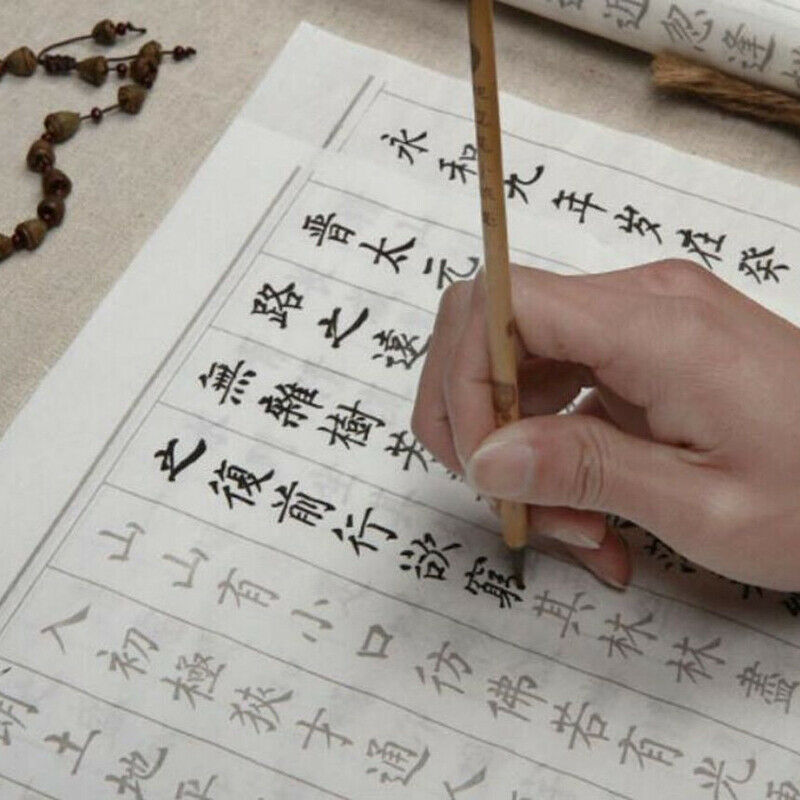 近忽逢
永和九年岁在癸
晉太元
路之遠
無雜樹芳
之復前行欲窮其林林盡
山山有小口彷佛若有光
入初極狹才通人
土地平